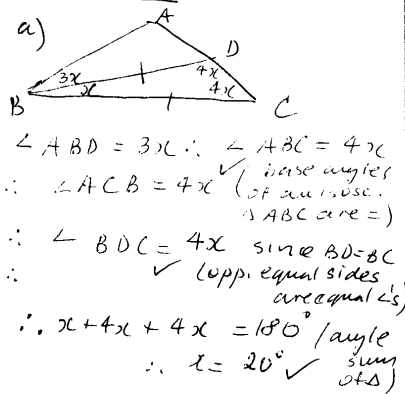 a)
A
D
3x
x
4x
4x
B
C
∠ABD = 3x ∴ ∠ABC = 4x
∴ ∠ACB = 4x ✓ (base angles
of an isosc.
Δ ABC are =)
∴ ∠BDC = 4x since BD=BC
∴ ✓ (opp. equal sides
are equal ∠'s)
∴ x+4x+4x = 180° /angle
∴ x = 20° ✓ sum
of Δ)